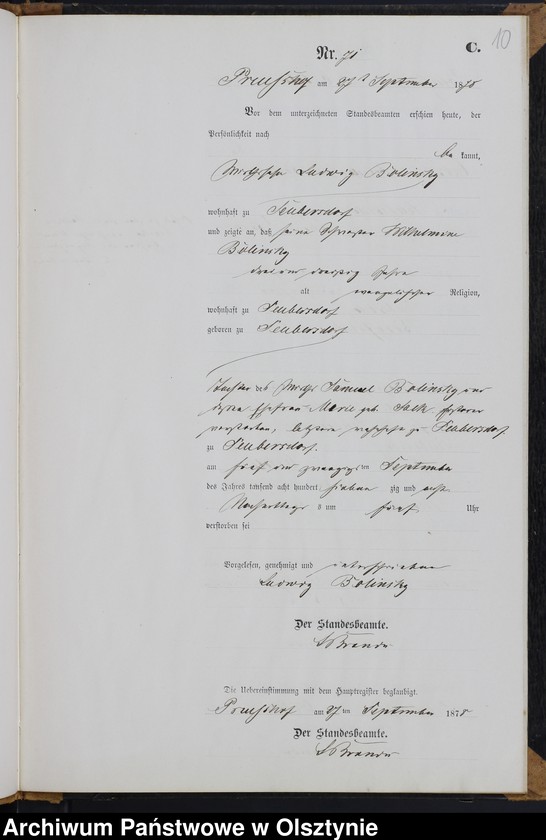 C.
10
Nr. 71
am 27 September 1878
Vor dem unterzeichneten Standesbeamten erschien heute, der
Persönlichkeit nach
be kannt,
Ludwig Bolinsky
wohnhaft zu Teubersdorf
und zeigte an, daß seine Schwester Wilhelmine
Bolinsky
drei und dreißig Jahre
alt evangelischer Religion,
wohnhaft zu Teubersdorf
geboren zu Teubersdorf
Tochter des Samuel Bolinsky und
dessen Ehefrau Marie geb. ersterer
verstorben, letztere wohnhaft zu Teubersdorf
zu Teubersdorf.
am fünf und zwanzig ten September
des Jahres tausend acht hundert sieben zig und acht
Nachmittags s um fünf Uhr
verstorben sei
Vorgelesen, genehmigt und unterschrieben
Ludwig Bolinsky
Der Standesbeamte.
Die Uebereinstimmung mit dem Hauptregister beglaubigt.
am 27 ten September 1878
Der Standesbeamte.
Archiwum Państwowe w Olsztynie